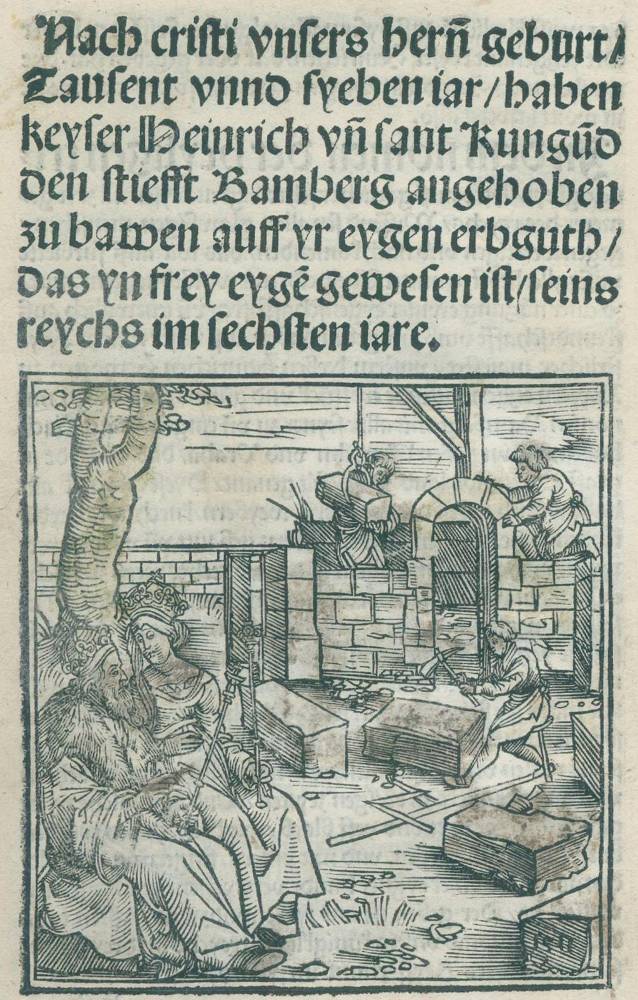 Nach cristi vnsers hern̄ geburt/
Tausent vnnd syeben iar/haben
keyser Heinrich vn̄ sant Kungūd
den stiefft Bamberg angehoben
zu bawen auff yr eygen erbguth/
das yn frey eygē gewesen ist/seins
reychs im sechsten iare.